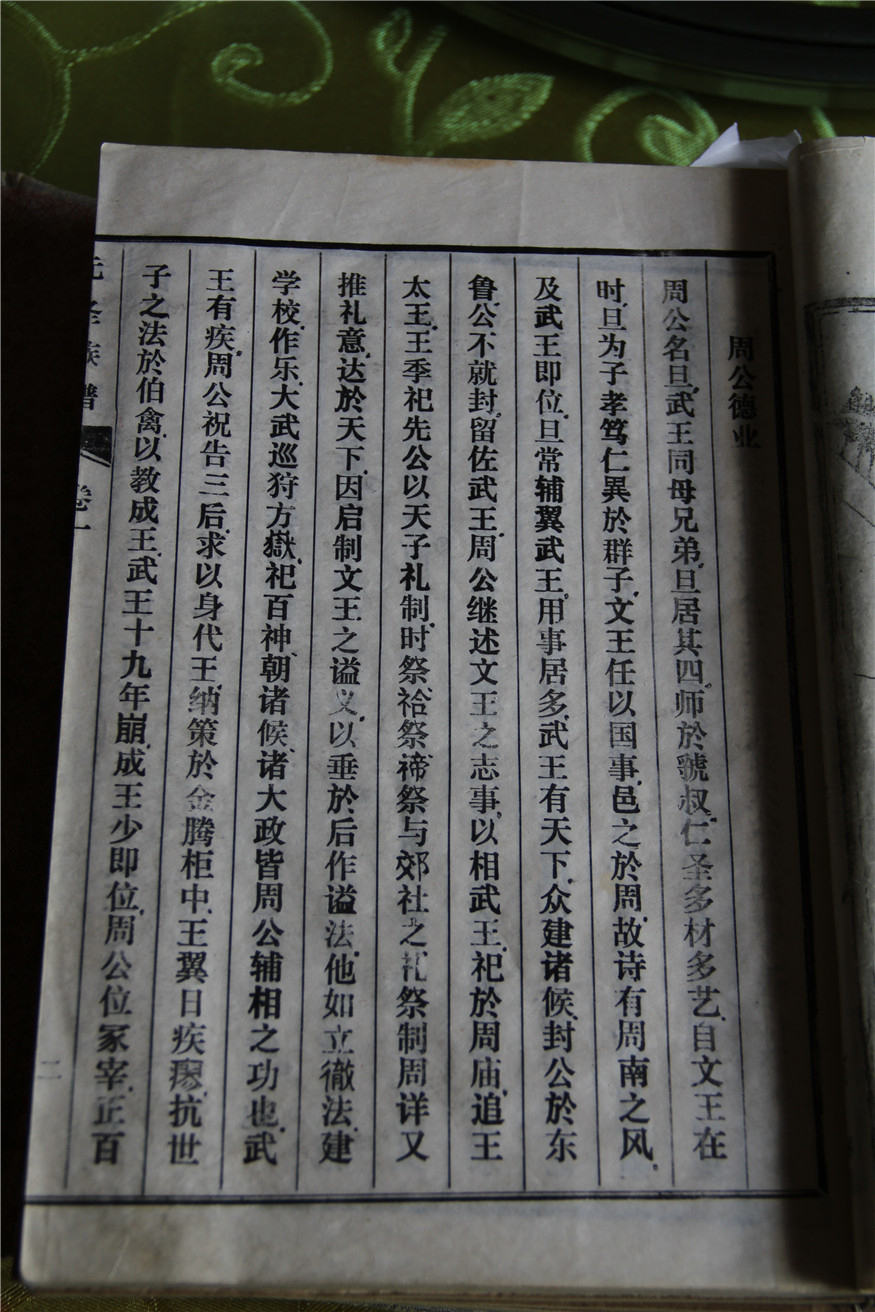 周公德业
周公名旦.武王同母兄弟.旦居其四。师於虢叔.仁圣多材多艺.自文王在
时.旦为子孝笃仁異於群子.文王任以国事.邑之於周.故诗有周南之风.
及武王即位.旦常辅翼武王.用事居多.武王有天下.众建诸候.封公於东
鲁.公不就封.留佐武王.周公继述文王之志事.以相武王.祀於周庙.追王
太王.王季祀先公以天子礼制.时祭、祫祭、禘祭与郊社之礼.祭制周详又
推礼意.达於天下.因启制文王之谥义.以垂於后作谥法.他如立徹法.建
学校.作乐.大武巡狩方嶽.祀百神、朝诸候、诸大政皆周公辅相之功也.武
王有疾.周公祝告三后.求以身代王.纳策於金腾柜中.王翼日疾瘳.抗世
子之法於伯禽.以教成王.武王十九年崩.成王少即位.周公位冢宰.正百
族谱
卷一
二